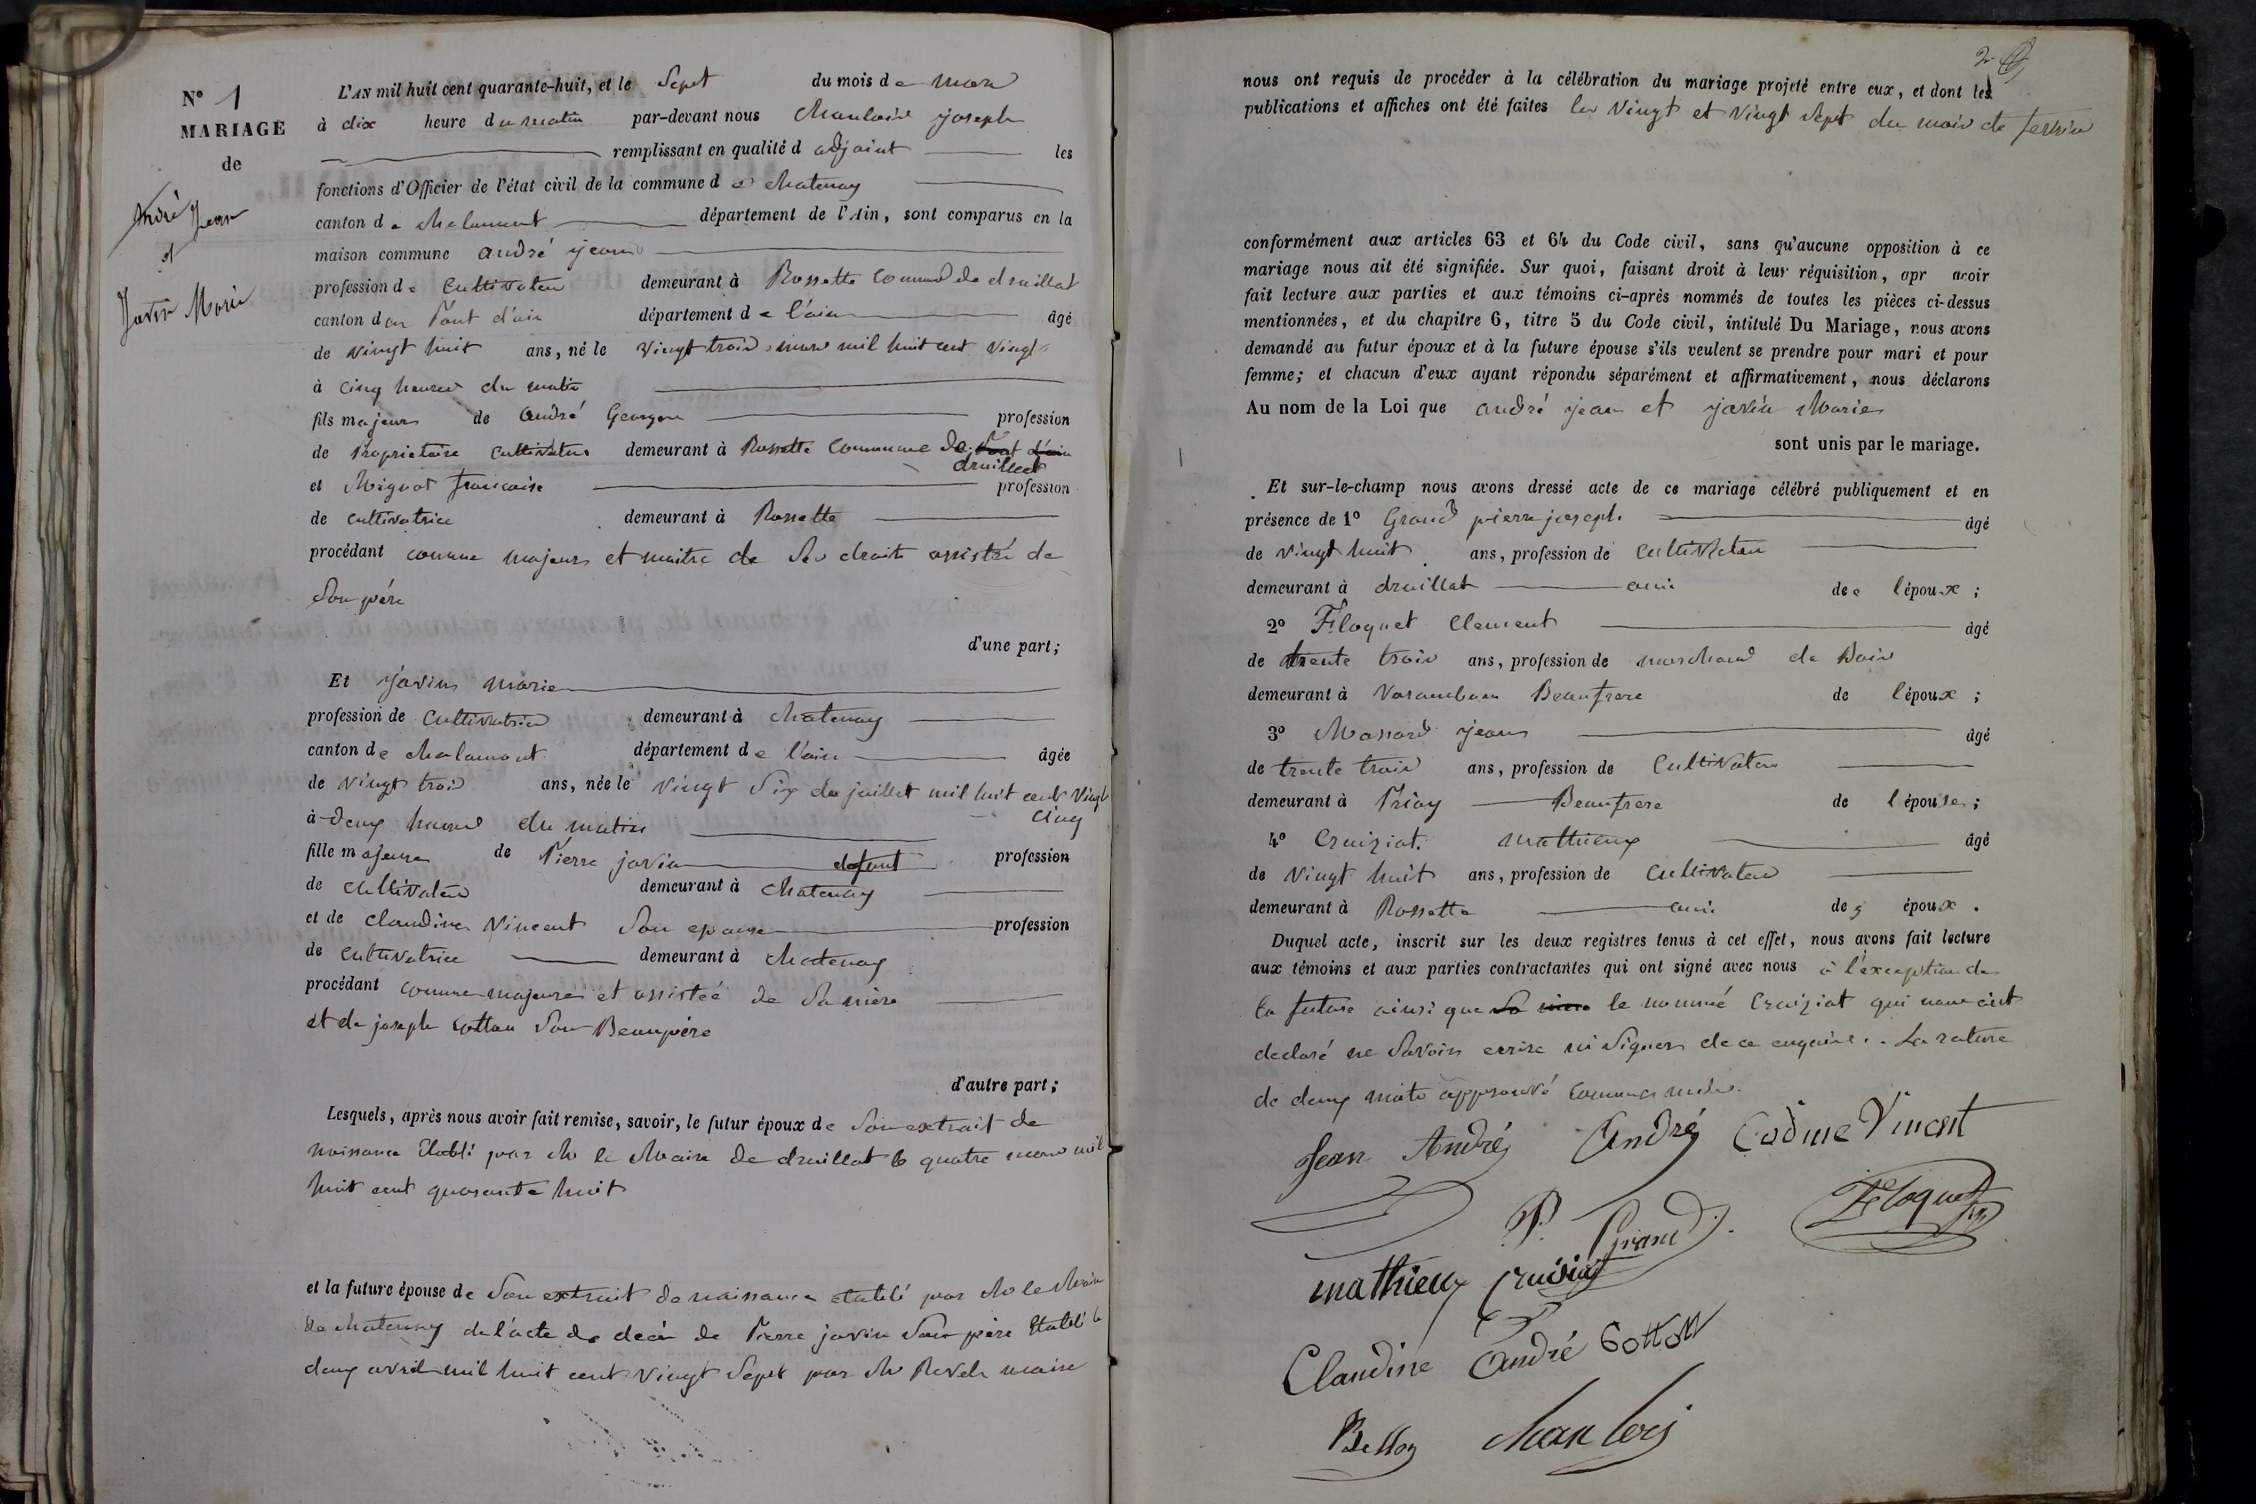 N° 1
MARIAGE
de
André Jean
et
Javin Marie
L'AN mil huit cent quarante-huit, et le Sept du mois de mars
à dix heure du matin par-devant nous joseph
remplissant en qualité d adjoint les
fonctions d'Officier de l'état civil de la commune de chatenay
canton de chalamont département de l'Ain, sont comparus en la
maison commune andré jean
profession de cultivateur demeurant à Rossette commune de druillat
canton du Pont d'ain département de l'ain âgé
de vingt huit ans, né le vingt trois mars mil huit cent vingt
à cinq heures du matin
fils majeur de andré George profession
de Propriétaire cultivateur demeurant à Rossette commune de Pont d'ain
druillat
et Mignot francoise profession
de cultivatrice demeurant à Rossette
procédant comme majeur et maitre de Ses droits assisté de
Son père
d'une part;
Et javin marie
profession de cultivatrice demeurant à chatenay
canton de chalamont département de l'ain âgée
de vingt trois ans, née le vingt Six de juillet mil huit cent vingt
cinq
à deux heures du matin
fille majeure de Pierre javin defunt profession
de cultivateur demeurant à chatenay
et de claudine Vincent Son epouse profession
de cultivatrice demeurant à chatenay
procédant comme majeure et assistée de Sa mère
et de joseph Cotton Son Beaupère
d'autre part;
Lesquels, après nous avoir fait remise, savoir, le futur époux de Son extrait de
naissance Etabli par Mr le Maire de druillat le quatre mars mil
huit cent quarante huit
et la future épouse de Son extrait de naissance etabli par Mr le Maire
de chatenay de l'acte de décès de Pierre javin Son père Etabli le
deux avril mil huit cent vingt Sept par Mr Revel maire
2
nous ont requis de procéder à la célébration du mariage projeté entre eux, et dont les
publications et affiches ont été faites les vingt et vingt Sept du mois de fevrier
conformément aux articles 63 et 64 du Code civil, sans qu'aucune opposition à ce
mariage nous ait été signifiée. Sur quoi, faisant droit à leur réquisition, apr avoir
fait lecture aux parties et aux témoins ci-après nommés de toutes les pièces ci-dessus
mentionnées, et du chapitre 6, titre 5 du Code civil, intitulé Du Mariage, nous avons
demandé au futur époux et à la future épouse s'ils veulent se prendre pour mari et pour
femme; et chacun d'eux ayant répondu séparément et affirmativement, nous déclarons
Au nom de la Loi que andré jean et javin Marie
sont unis par le mariage.
Et sur-le-champ nous avons dressé acte de ce mariage célébré publiquement et en
présence de 1° Grand pierre joseph âgé
de vingt huit ans, profession de cultivateur
demeurant à druillat ami de l'époux;
2° Floquet Clement âgé
de trente trois ans, profession de marchand de Bois
demeurant à Varambon Beaufrere de l'époux;
3° Massard jean âgé
de trente trois ans, profession de cultivateur
demeurant à Priay Beaufrere de l'épouse;
4° Cruiziat. mathieux âgé
de vingt huit ans, profession de cultivateur
demeurant à Rossette ami des époux.
Duquel acte, inscrit sur les deux registres tenus à cet effet, nous avons fait lecture
aux témoins et aux parties contractantes qui ont signé avec nous à l'exception de
la future ainsi que Sa mère le nommé Cruiziat qui nous ont
declaré ne Savoir ecrire ni Signer de ce enquis. La rature
de deux mots approuvé comme nuls.
Jean André André Codine Vincent
P. Grand Floquet
mathieux Cruiziat
Claudine André Cotton
Belloy